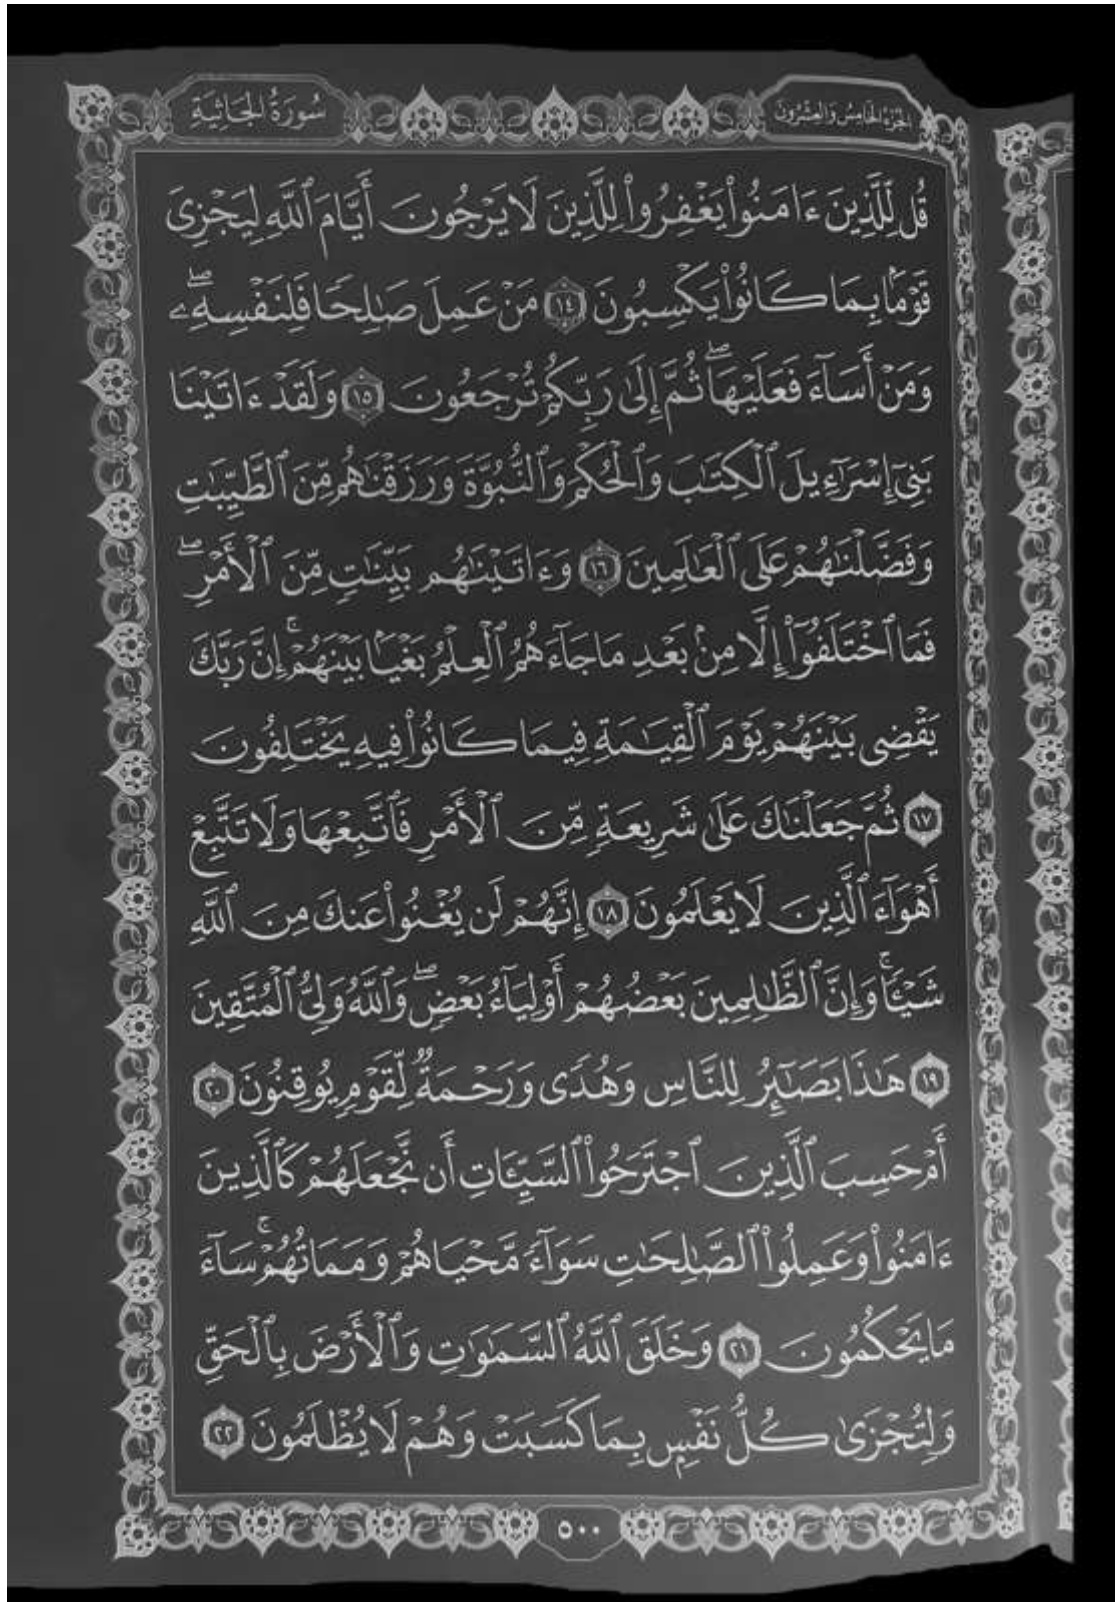 الجزء الخامس والعشرون
سُورَةُ الجَاثِيَةِ
قُل لِّلَّذِينَ ءَامَنُوا۟ يَغْفِرُوا۟ لِلَّذِينَ لَا يَرْجُونَ أَيَّامَ ٱللَّهِ لِيَجْزِىَ
قَوْمَۢا بِمَا كَانُوا۟ يَكْسِبُونَ ١٤ مَنْ عَمِلَ صَٰلِحًا فَلِنَفْسِهِۦۖ
وَمَنْ أَسَآءَ فَعَلَيْهَاۖ ثُمَّ إِلَىٰ رَبِّكُمْ تُرْجَعُونَ ١٥ وَلَقَدْ ءَاتَيْنَا
بَنِىٓ إِسْرَٰٓءِيلَ ٱلْكِتَٰبَ وَٱلْحُكْمَ وَٱلنُّبُوَّةَ وَرَزَقْنَٰهُم مِّنَ ٱلطَّيِّبَٰتِ
وَفَضَّلْنَٰهُمْ عَلَى ٱلْعَٰلَمِينَ ١٦ وَءَاتَيْنَٰهُم بَيِّنَٰتٍ مِّنَ ٱلْأَمْرِۖ
فَمَا ٱخْتَلَفُوٓا۟ إِلَّا مِنۢ بَعْدِ مَا جَآءَهُمُ ٱلْعِلْمُ بَغْيَۢا بَيْنَهُمْۚ إِنَّ رَبَّكَ
يَقْضِى بَيْنَهُمْ يَوْمَ ٱلْقِيَٰمَةِ فِيمَا كَانُوا۟ فِيهِ يَخْتَلِفُونَ
١٧ ثُمَّ جَعَلْنَٰكَ عَلَىٰ شَرِيعَةٍ مِّنَ ٱلْأَمْرِ فَٱتَّبِعْهَا وَلَا تَتَّبِعْ
أَهْوَآءَ ٱلَّذِينَ لَا يَعْلَمُونَ ١٨ إِنَّهُمْ لَن يُغْنُوا۟ عَنكَ مِنَ ٱللَّهِ
شَيْـًٔاۚ وَإِنَّ ٱلظَّٰلِمِينَ بَعْضُهُمْ أَوْلِيَآءُ بَعْضٍۖ وَٱللَّهُ وَلِىُّ ٱلْمُتَّقِينَ
١٩ هَٰذَا بَصَٰٓئِرُ لِلنَّاسِ وَهُدًى وَرَحْمَةٌ لِّقَوْمٍ يُوقِنُونَ ٢٠
أَمْ حَسِبَ ٱلَّذِينَ ٱجْتَرَحُوا۟ ٱلسَّيِّـَٔاتِ أَن نَّجْعَلَهُمْ كَٱلَّذِينَ
ءَامَنُوا۟ وَعَمِلُوا۟ ٱلصَّٰلِحَٰتِ سَوَآءً مَّحْيَاهُمْ وَمَمَاتُهُمْۚ سَآءَ
مَا يَحْكُمُونَ ٢١ وَخَلَقَ ٱللَّهُ ٱلسَّمَٰوَٰتِ وَٱلْأَرْضَ بِٱلْحَقِّ
وَلِتُجْزَىٰ كُلُّ نَفْسٍۭ بِمَا كَسَبَتْ وَهُمْ لَا يُظْلَمُونَ ٢٢
٥٠٠